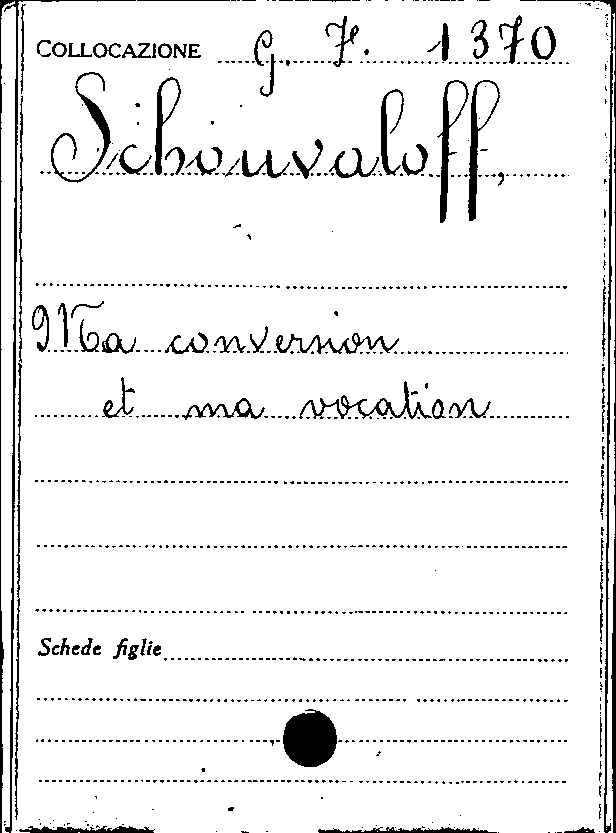 COLLOCAZIONE G. F. 1370
Schouvaloff,
Ma conversion
et ma vocation
Schede figlie